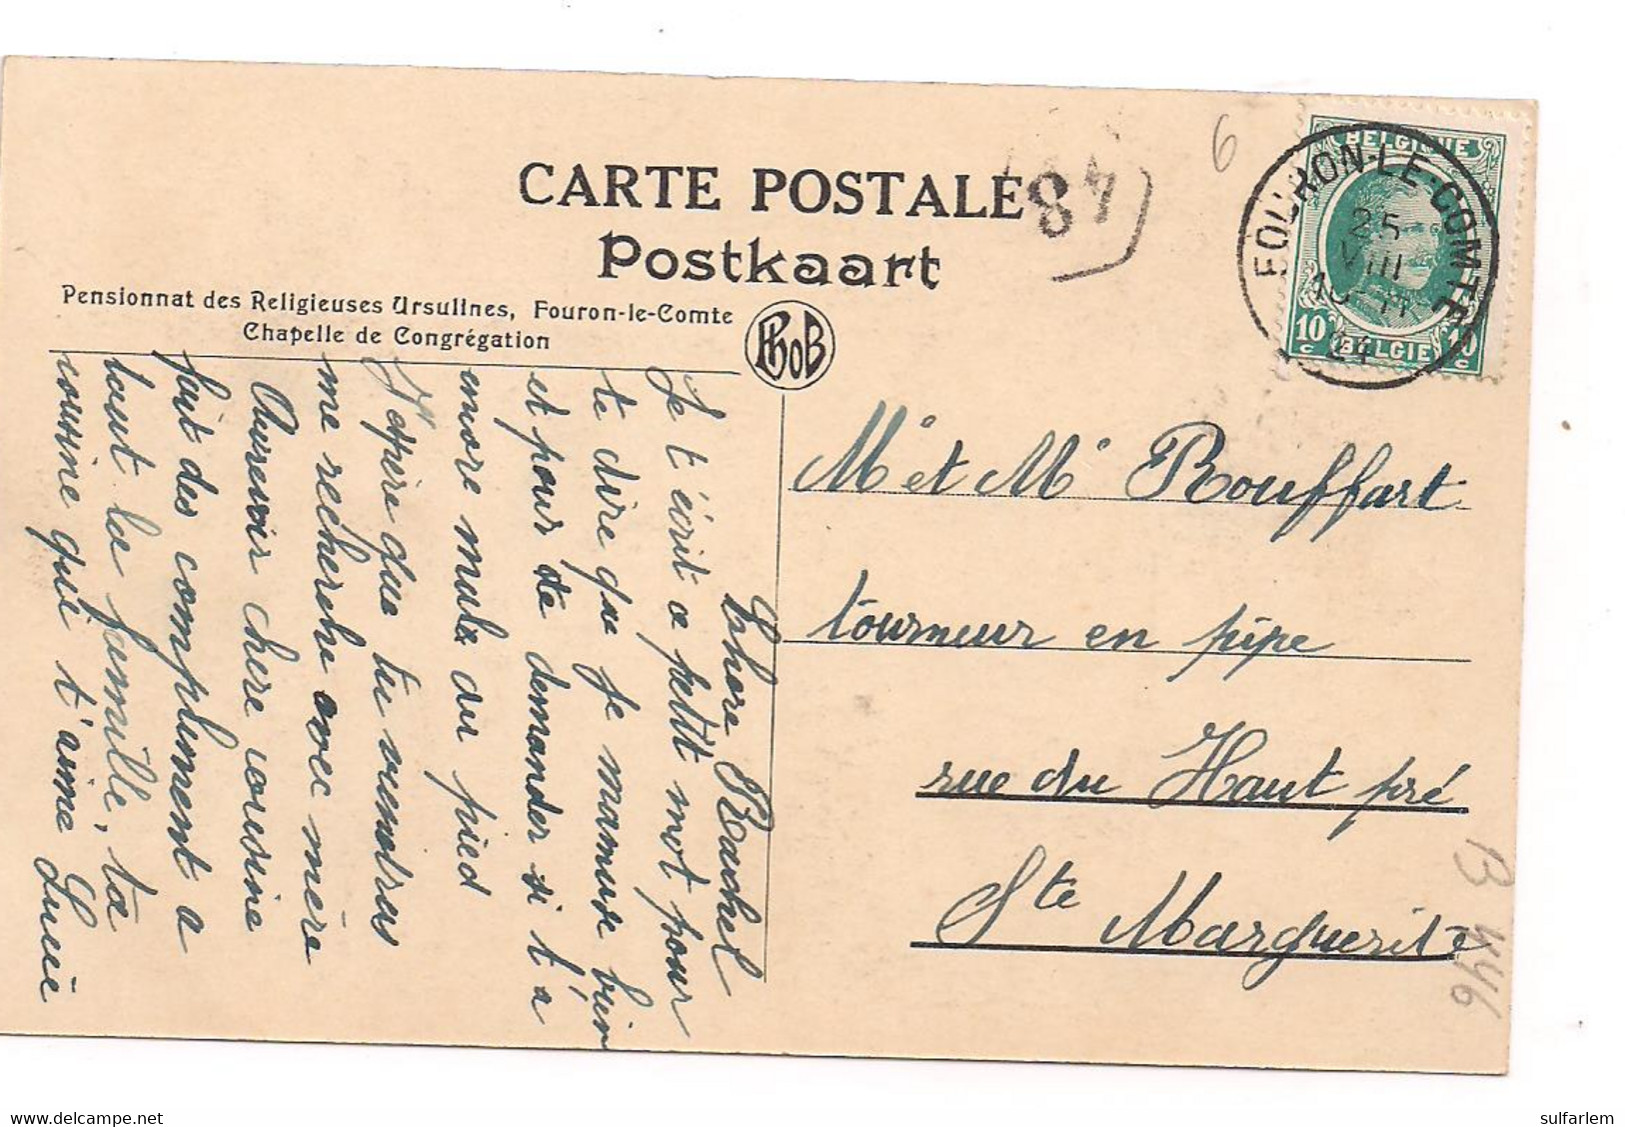 CARTE POSTALE
Postkaart
Pensionnat des Religieuses Ursulines, Fouron-le-Comte
Chapelle de Congrégation
PhoB
6
48
FOURON-LE-COMTE
25
VIII
24
BELGIQUE
10 c
BELGIE
10 c
Chere Rachel
Je t'écrit ce petit mot pour
te dire que je mamuse bien
et pour te demander si t'a
encore mala du pied
J'espère que tu viendras
me recherche avec mère
Auresvoir chere cousine
fait des compliment a
tout la famille, ta
cousine qui t'aime Lucie
Mr et Me Rouffart
tourneur en pipe
rue du Haut pré
Ste Marguerite
B 446
www.delcampe.net
sulfarlem